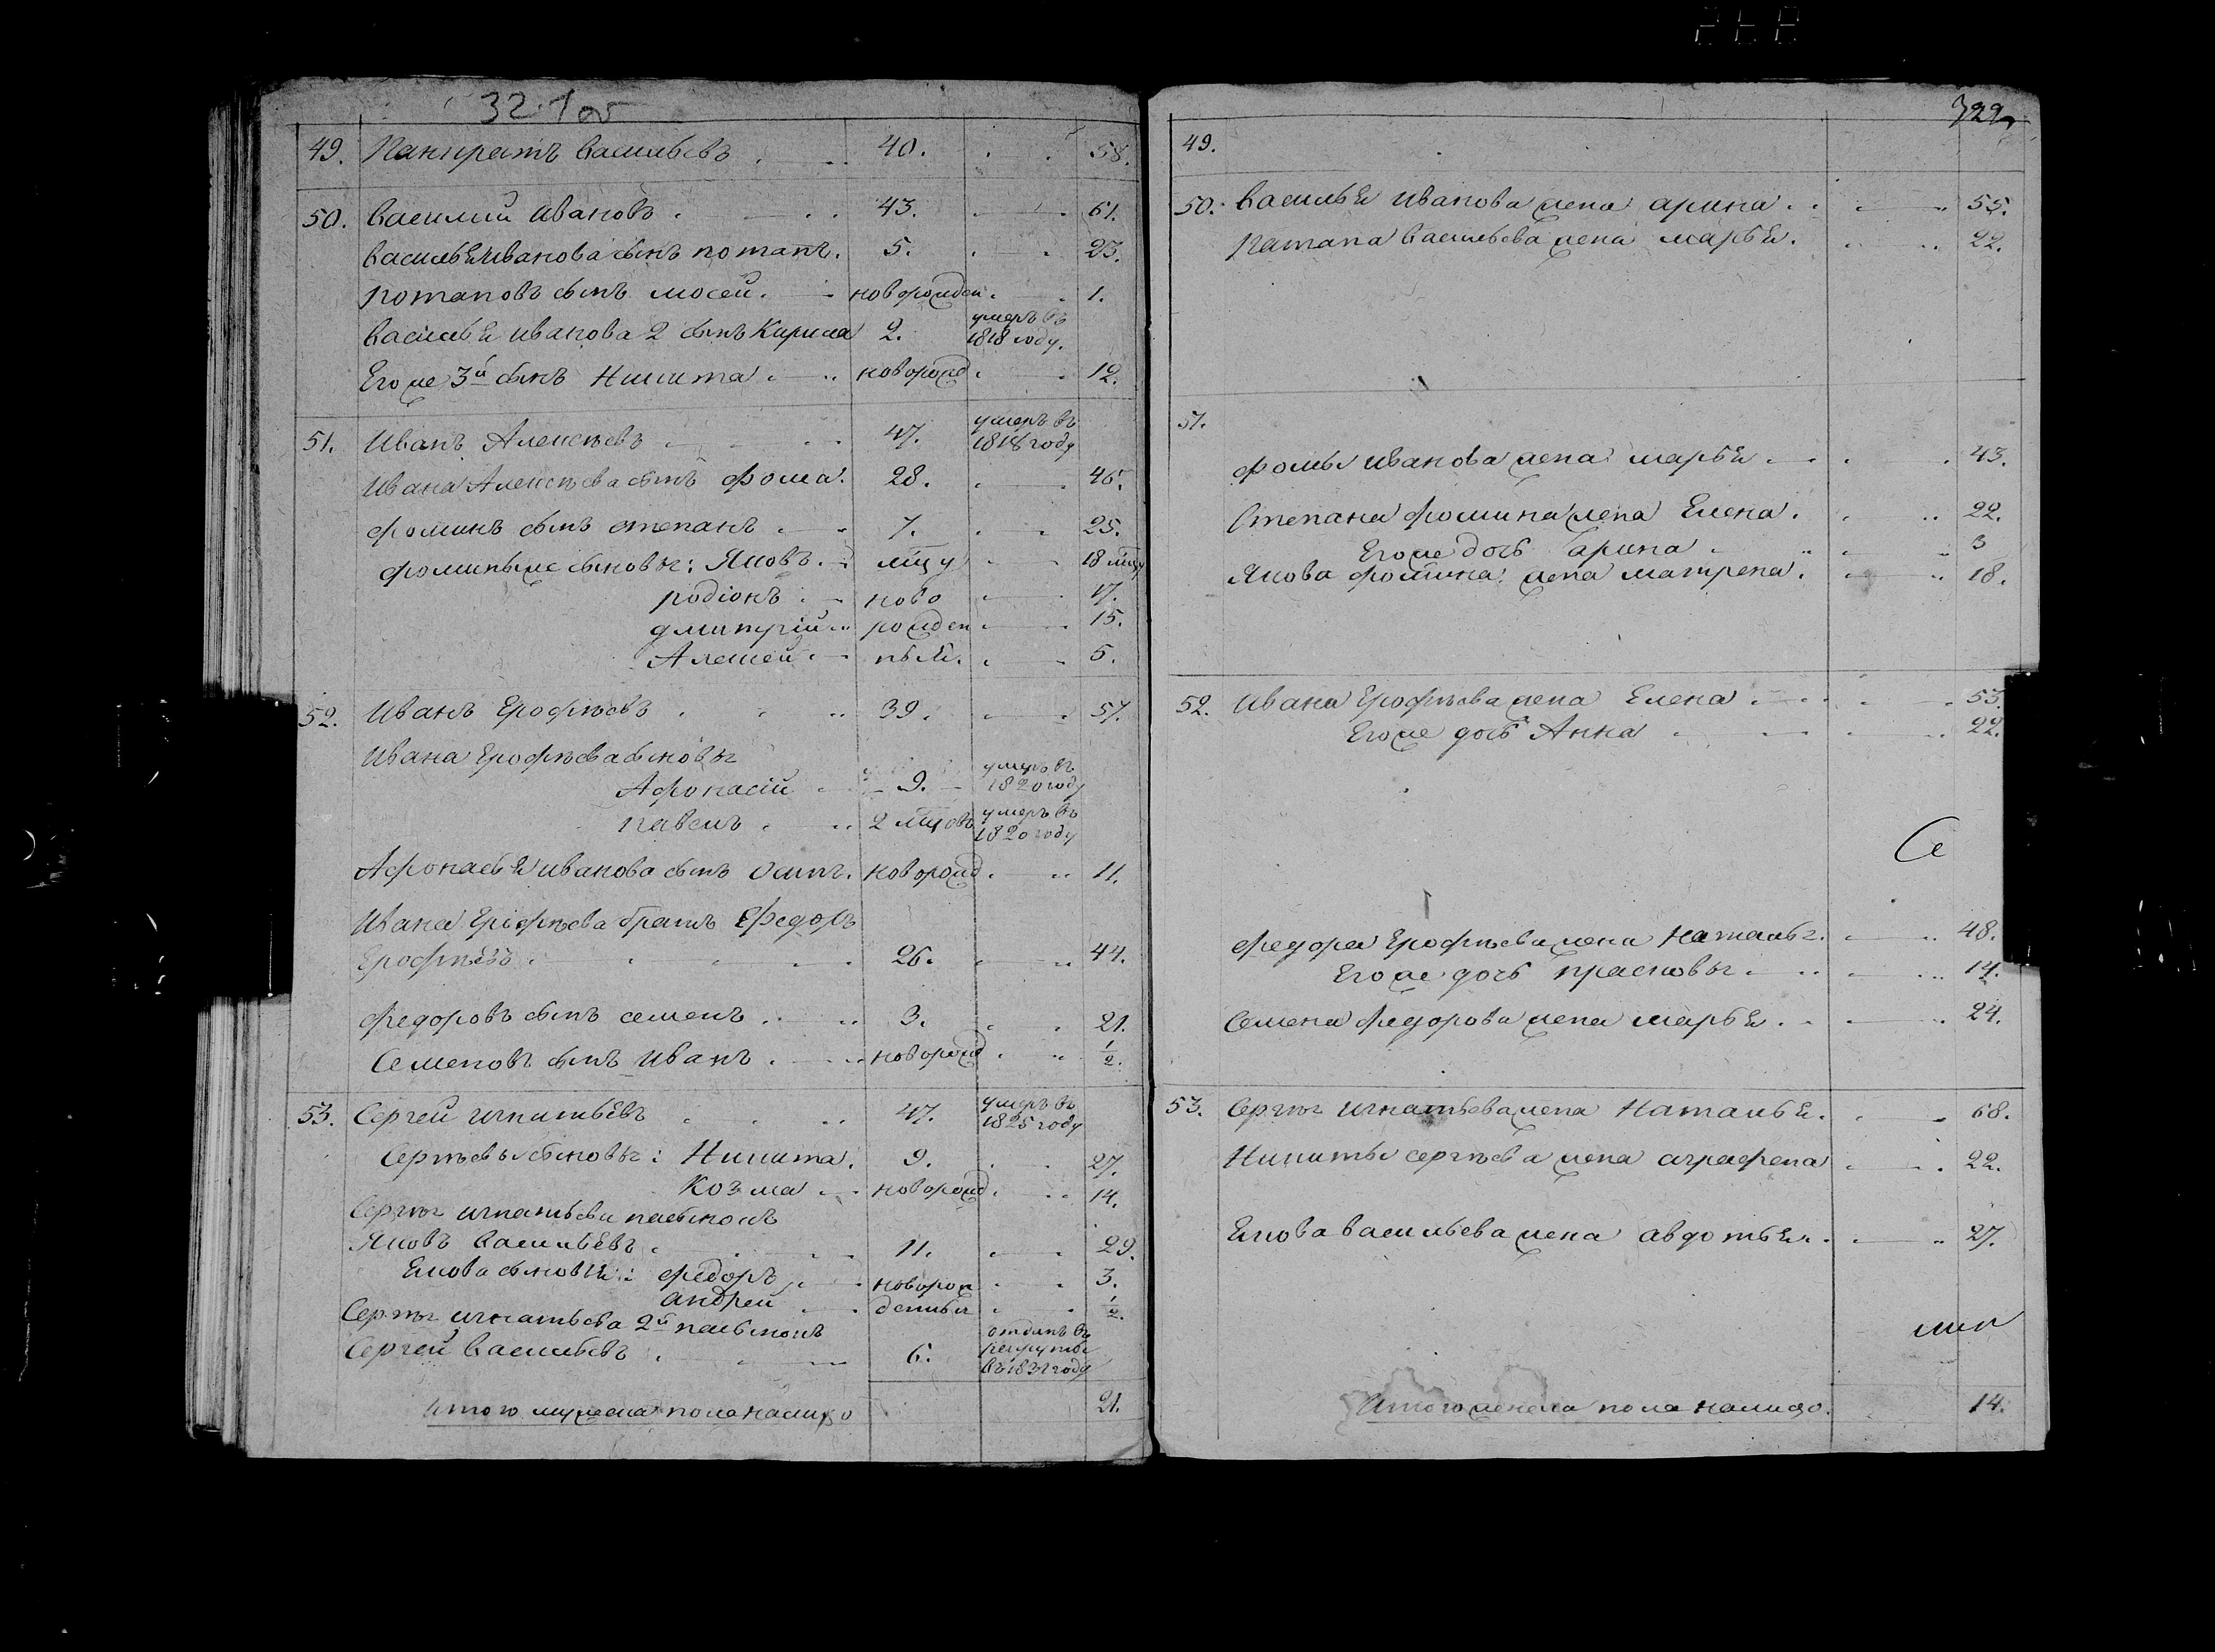 949
321об
49. Панкратъ Васильевъ 40. 58.
50. Василий Ивановъ. 43. 61.
Василья Иванова сынъ потапъ. 5. 23.
потаповъ сынъ мосей. новорожден. 1.
Василья Иванова 2 сынъ Кирила 2. умеръ въ 1818 году.
Егоже 3й сынъ Никита новорожд. 12.
51. Иванъ Алексѣевъ 47. умеръ въ 1818 году
Ивана Алексѣева сынъ фома. 28. 46.
фоминъ сынъ степанъ 7. 25.
фомины же сыновья: Яковъ. мцу 18 мцу
родіонъ ново 17.
дмитрій рожден 15.
Алексей ныя. 5.
52. Иванъ Ерофѣевъ 39. 57.
Ивана Ерофѣева сыновья
Афонасій 9. умеръ въ 1820 году
павелъ 2 мцовъ умеръ въ 1820 году
Афонасья Иванова сынъ осипъ. новорожд. 11.
Ивана Ерофѣева братъ Федоръ
Ерофѣевъ 26. 44.
федоровъ сынъ семенъ 3. 21.
Семеновъ сынъ Иванъ новорожд 1/2.
53. Сергей игнатьевъ 47. умеръ въ 1825 году
Сергѣевы сыновья: Никита. 9. 27.
Козма новорожд. 14.
Сергѣя игнатьева пасынокъ
Яковъ Васильевъ. 11. 29.
Якова сыновья: федоръ новорож 3.
андрей денныя 1/2.
Сергѣя игнатьева 2й пасынокъ
Сергей Васильевъ 6. отданъ въ рекруты въ 1831 году
итого мужеска пола налицо 21.
322
49.
50. Василья Иванова жена арина 55.
Патапа Васильева жена марья. 22.
51.
фомы иванова жена марья 43.
Степана фомина жена Елена. 22.
Егоже дочь арина 3
Якова фомина жена матрена. 18.
52. Ивана Ерофѣева жена Елена 53.
Егоже дочь Анна 22.
Се
федора Ерофѣева жена Наталья. 48.
Егоже дочь прасковья 14.
Семена федорова жена марья. 24.
53. Сергѣя игнатьева жена Наталья. 68.
Никиты сергѣева жена аграфена 22.
Якова васильева жена авдотья. 27.
мен
Итого женска пола налицо. 14.